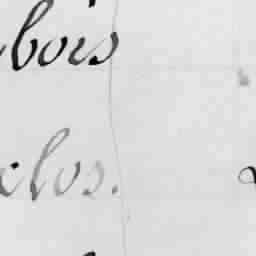 bois
clos.